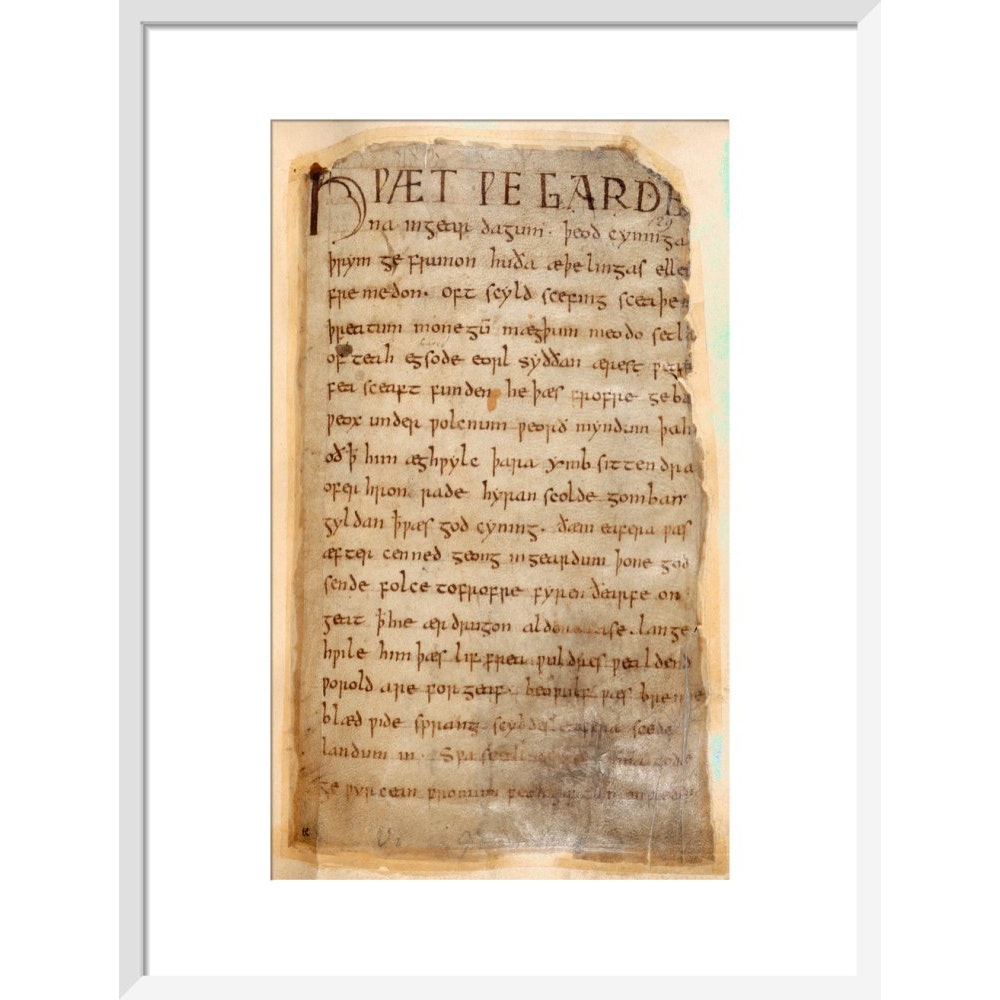 HǷÆT ǷE GARDE
na ingear dagum . þeod cyninga
þrym ge frunon huða æþelingas elle
fremedon . oft scyld scefing sceaþe
þreatum monegū mægþum meodo setla
of teah egsode eorl syððan ærest ƿear
fea sceaft funden he þæs frofre geba
ƿeox under ƿolcnum ƿeorð myndum þah
oðꝥ him æghƿylc þara ymb sittendra
ofer hron rade hyran scolde gomban
gyldan ꝥƿæs god cyning . ðæm eafera ƿæs
æfter cenned geong ingeardum þone god
sende folce tofrofre fyren ðearfe on
geat ꝥhie ær drugon aldor ase . lange
hƿile him þæs lif frea ƿuldres ƿealdend
ƿorold are forgeaf . beoƿulf ƿæs breme
blæd ƿide sprang scyldes eafera scede
landum in . Sƿa sceal guma gode
ge ƿyrcean fromum feoh giftum